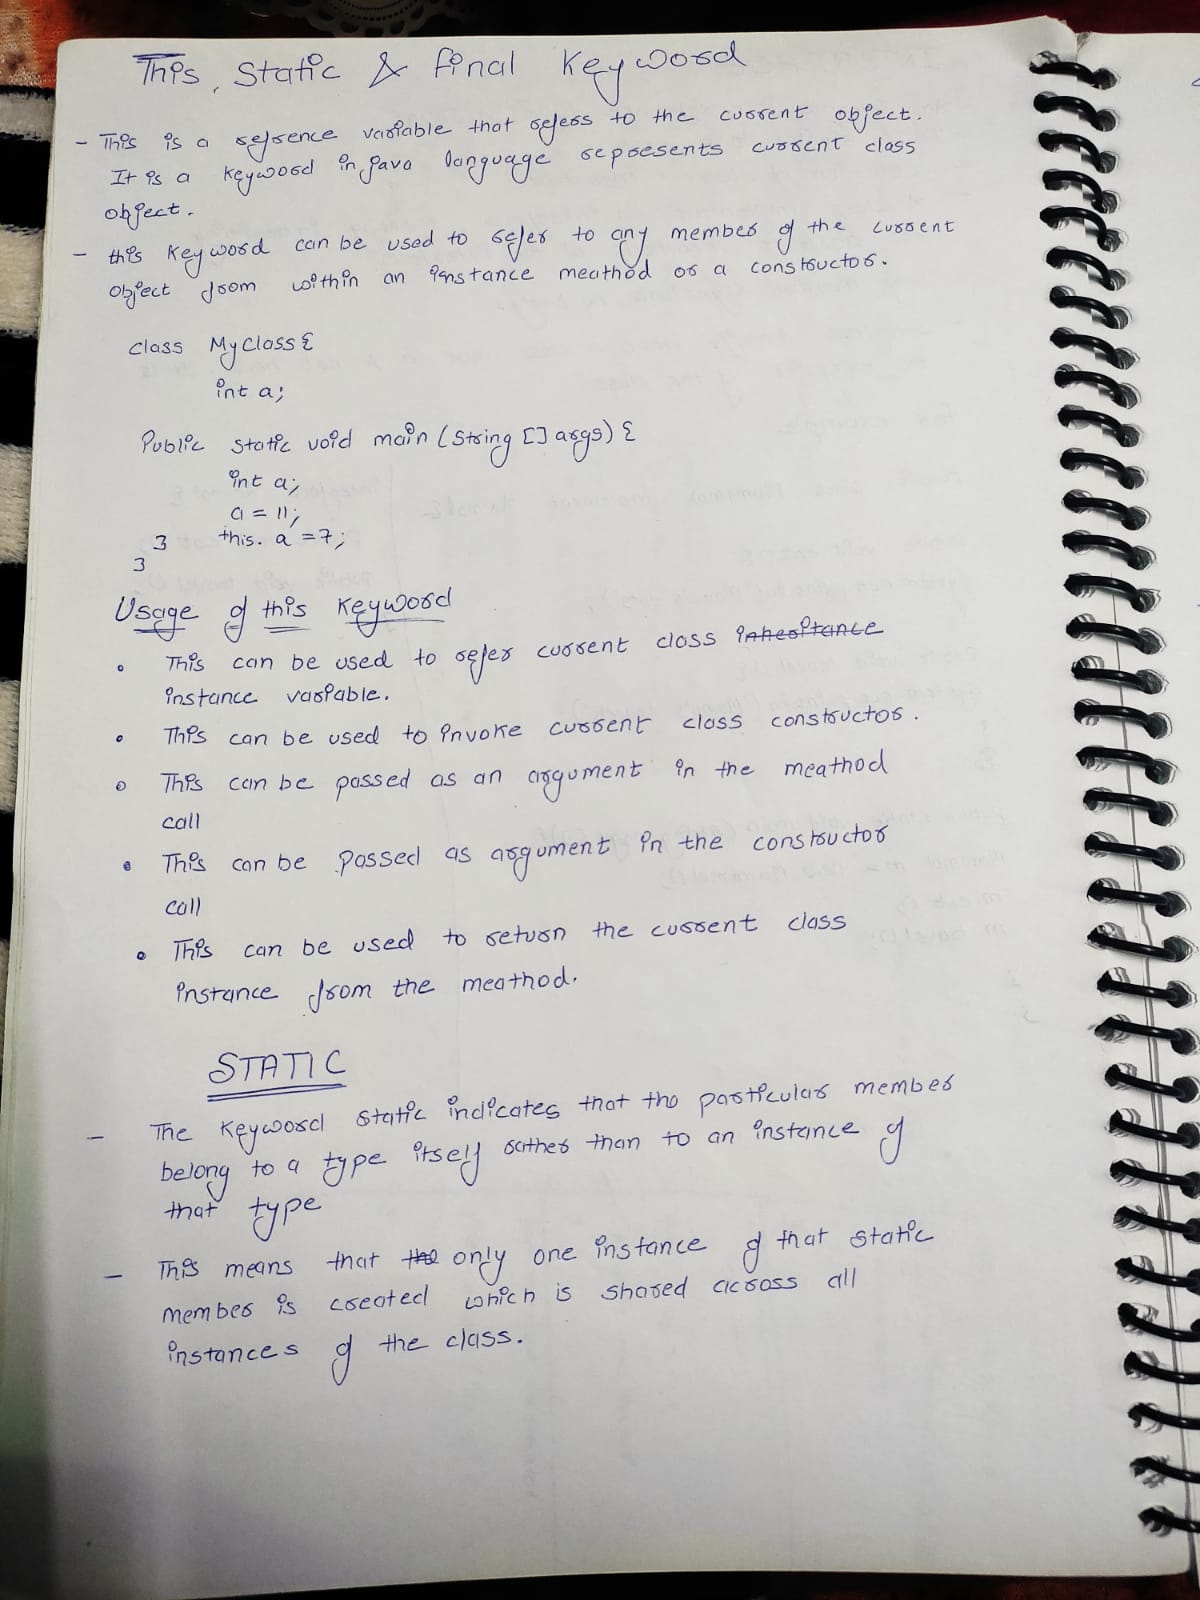 This, Static & final Keyword
- This is a refrence variable that refers to the current object.
It is a keyword in java language represents current class
object.
- this Keyword can be used to refer to any member of the current
object from within an instance meathod or a constructor.
class MyClass {
int a;
Public static void main (String [] args) {
int a;
a = 11;
} this. a = 7;
}
Usage of this Keyword
• This can be used to refer current class inheritance
instance variable.
• This can be used to invoke current class constructor.
• This can be passed as an argument in the meathod
call
• This can be passed as argument in the constructor
call
• This can be used to return the current class
instance from the meathod.
STATIC
- The Keyword static indicates that the particular member
belong to a type itself rather than to an instance of
that type
- This means that the only one instance of that static
member is created which is shared across all
instances of the class.